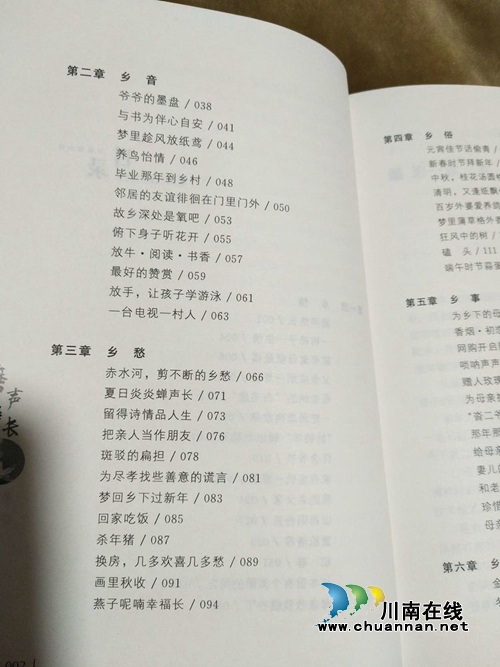 第二章 乡音
爷爷的墨盘 / 038
与书为伴心自安 / 041
梦里趁风放纸鸢 / 044
养鸟怡情 / 046
毕业那年到乡村 / 048
邻居的友谊徘徊在门里门外 / 050
故乡深处是氧吧 / 053
俯下身子听花开 / 055
放牛·阅读·书香 / 057
最好的赞赏 / 059
放手，让孩子学游泳 / 061
一台电视一村人 / 063
第三章 乡愁
赤水河，剪不断的乡愁 / 066
夏日炎炎蝉声长 / 071
留得诗情品人生 / 073
把亲人当作朋友 / 076
斑驳的扁担 / 078
为尽孝找些善意的谎言 / 081
梦回乡下过新年 / 083
回家吃饭 / 085
杀年猪 / 087
换房，几多欢喜几多愁 / 089
画里秋收 / 091
燕子呢喃幸福长 / 094
声
长
002
第四章 乡俗
元宵佳节话偷青 /
新春时节拜新年 /
中秋，桂花汤圆
清明，又逢纸飘
百岁外婆爱养鸽
梦里蒲草格外香
狂风中的树 /
磕头 / 111
端午时节蒜
第五章 乡事
为乡下的母
香烟·初恋
网购开启
唢呐声声
赠人玫瑰
为母亲
"斋二爷
那年那
给母亲
妻儿的
和老
珍惜
母亲
第六章 乡
金
川南在线
www.chuannan.net